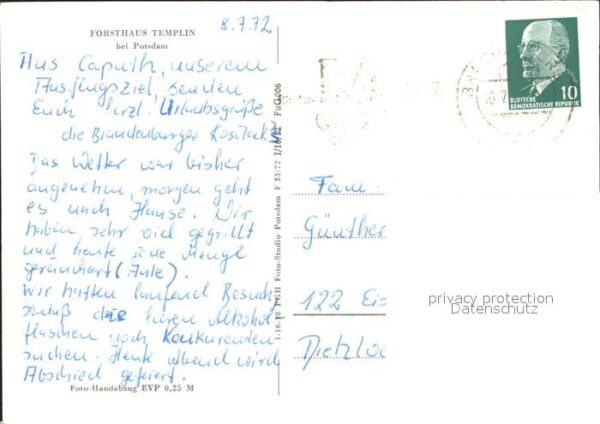 8.7.72
FORSTHAUS TEMPLIN
bei Potsdam
Aus Caputh, unserem
Ausflugsziel, senden
Euch herzl. Urlaubsgrüße
die Brandenburger
Das Wetter war bisher
angenehm, morgen geht
es nach Hause. Wir
haben sehr viel gegrillt
und heute jede Menge
geräuchert (Aale).
Wir hatten laufend Besuch
alkohol
flaschen nach Konkurenten
suchen. Heute abend wird
Abschied gefeiert.
Foto-Handabzug EVP 0,25 M
I-16-18 PGH Foto-Studio Potsdam F 33/72 FuG/06
10
DEUTSCHE
DEMOKRATISCHE REPUBLIK
Fam.
Günther
122 Eis
privacy protection
Datenschutz